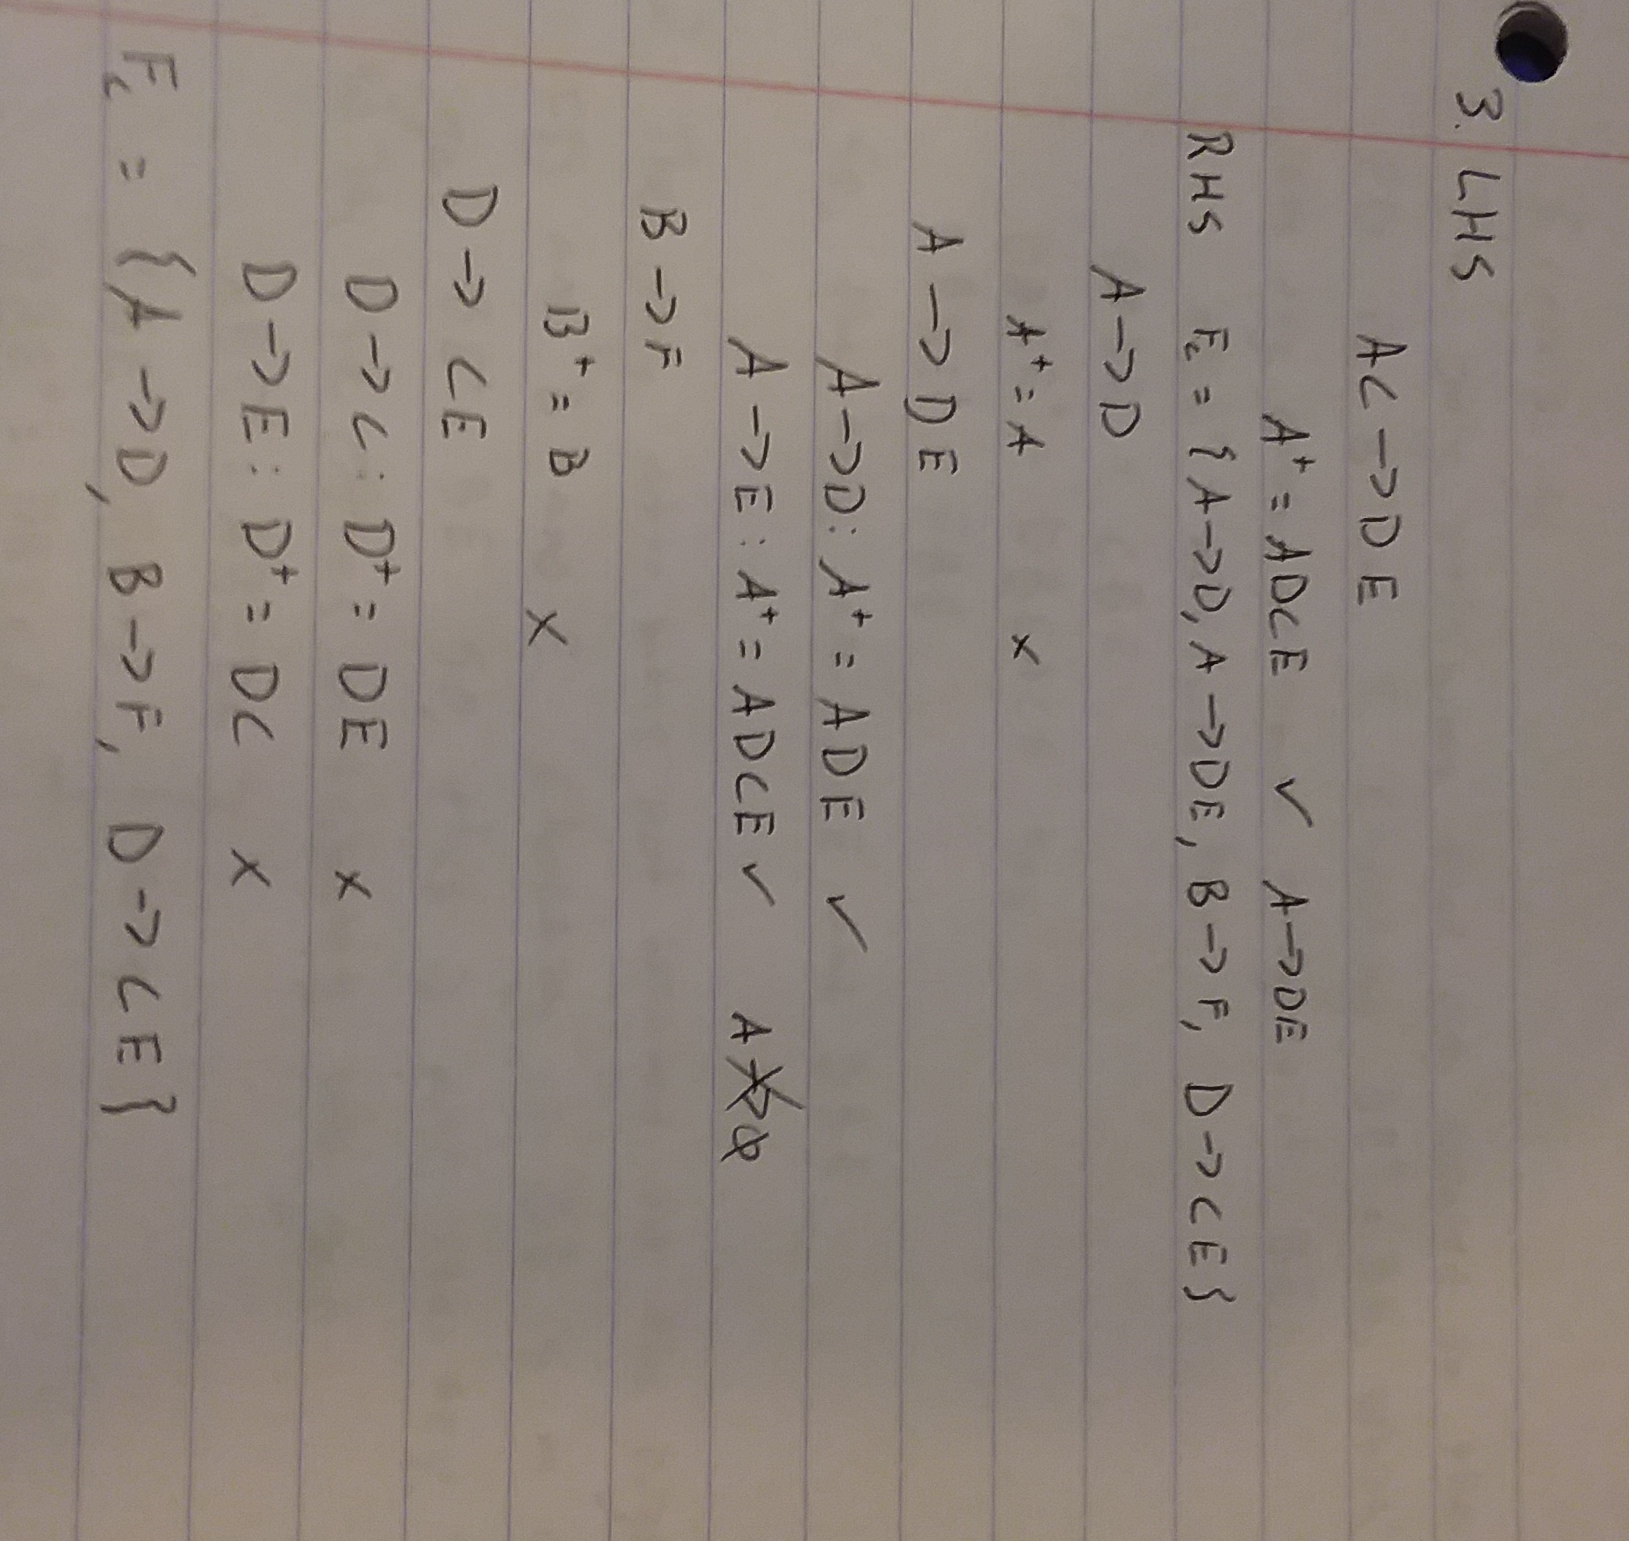 3. LHS
AC → DE
A⁺ = ADCE ✓ A → DE
RHS Fc = {A → D, A → DE, B → F, D → CE}
A → D
A⁺ = A ×
A → DE
A → D: A⁺ = ADE ✓
A → E: A⁺ = ADCE ✓ A → ∅
B → F
B⁺ = B ×
D → CE
D → C: D⁺ = DE ×
D → E: D⁺ = DC ×
Fc = {A → D, B → F, D → CE}